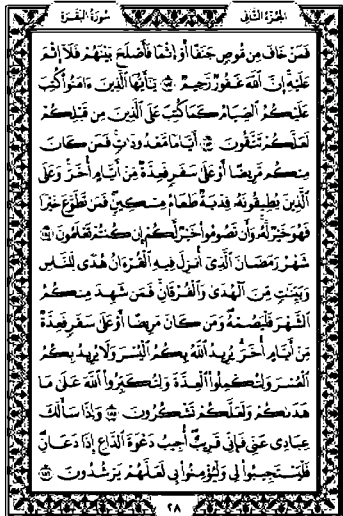 الجزء الثاني
سورة البقرة
فمن خاف من موص جنفا أو إثما فأصلح بينهم فلا إثم
عليه إن الله غفور رحيم ١٨٢ يأيها الذين ءامنوا كتب
عليكم الصيام كما كتب على الذين من قبلكم
لعلكم تتقون ١٨٣ أياما معدودات فمن كان
منكم مريضا أو على سفر فعدة من أيام أخر وعلى
الذين يطيقونه فدية طعام مسكين فمن تطوع خيرا
فهو خير له وأن تصوموا خير لكم إن كنتم تعلمون ١٨٤
شهر رمضان الذي أنزل فيه القرءان هدى للناس
وبينت من الهدى والفرقان فمن شهد منكم
الشهر فليصمه ومن كان مريضا أو على سفر فعدة
من أيام أخر يريد الله بكم اليسر ولا يريد بكم
العسر ولتكملوا العدة ولتكبروا الله على ما
هدىكم ولعلكم تشكرون ١٨٥ وإذا سألك
عبادي عني فإني قريب أجيب دعوة الداع إذا دعان
فليستجيبوا لي وليؤمنوا بي لعلهم يرشدون ١٨٦
٢٨